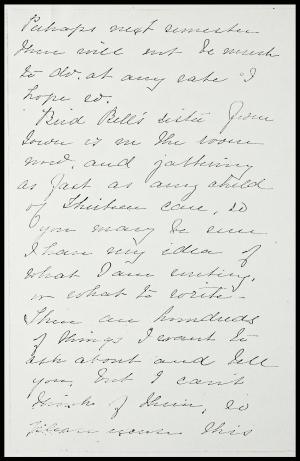 Perhaps next semester
there will not be much
to do. at any rate I
hope so.
Bird Bell's sister from
Iowa is in the room
now. and jabbering
as fast as any child
of thirteen can, so
you may be sure
I have no idea of
what I am writing,
or what to write -
There are hundreds
of things I want to
ask about and tell
you, but I can't
think of them, so
please excuse this